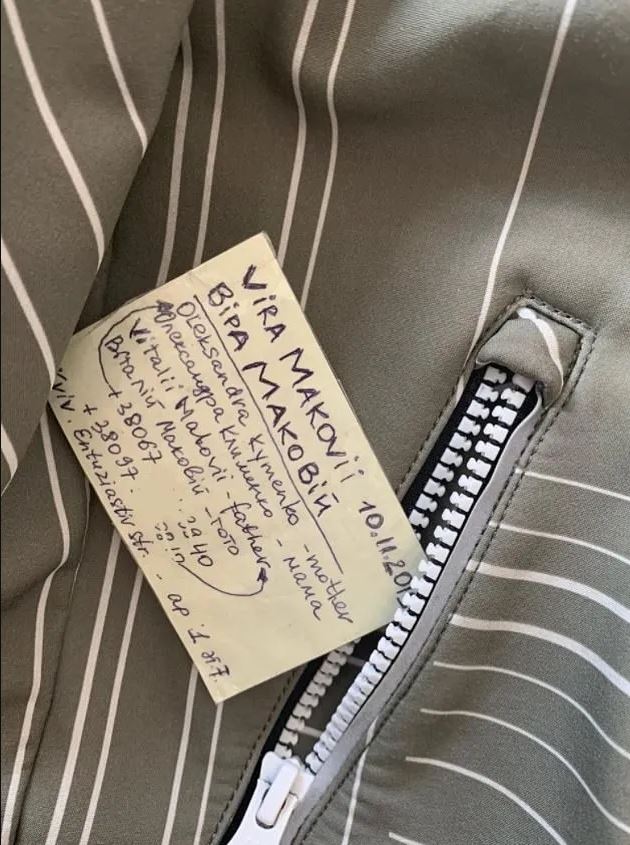 VIRA MAKOVII
ВІРА МАКОВІЙ 10.11.20
Oleksandra Kymenko - mother
Александра Клименко - мама
Vitalii Makovii - father
Віталій Маковій - тато
+38067 40
+38097
Entuziastiv str. - ap.